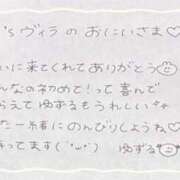 'sヴィラのおにいさま♡
いに来てくれてありがとう
んなの初めて!って喜んで
らえてゆずるもうれしい
た一緒にのんびりしようね♡
ってます(´ω`) ゆずる